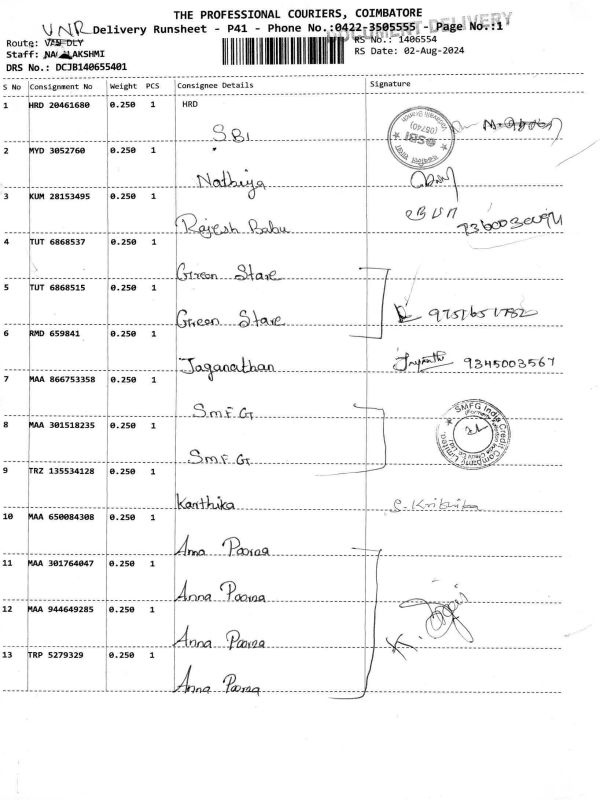 THE PROFESSIONAL COURIERS, COIMBATORE
DOCUMENT DELIVERY
VNR Delivery Runsheet - P41 - Phone No.:0422-3505555 - Page No.:1
Route: DLY
RS No.: 1406554
Staff: LAKSHMI
RS Date: 02-Aug-2024
DRS No.: DCJB140655401
S No Consignment No Weight PCS Consignee Details Signature
1 HRD 20461680 0.250 1 HRD
SBI
SBI
(05740)
2 MYD 3052760 0.250 1
Nathiya
3 KUM 28153495 0.250 1
Rajesh Babu
4 TUT 6868537 0.250 1
Green Stare
5 TUT 6868515 0.250 1
Green Stare 9751651782
6 RMD 659841 0.250 1
Jaganathan 9345003567
7 MAA 866753358 0.250 1
SMFG
SMFG India Credit Company Limited
8 MAA 301518235 0.250 1
SMFG
9 TRZ 135534128 0.250 1
Karthika
10 MAA 650084308 0.250 1
Anna Poorna
11 MAA 301764047 0.250 1
Anna Poorna
12 MAA 944649285 0.250 1
Anna Poorna
13 TRP 5279329 0.250 1
Anna Poorna